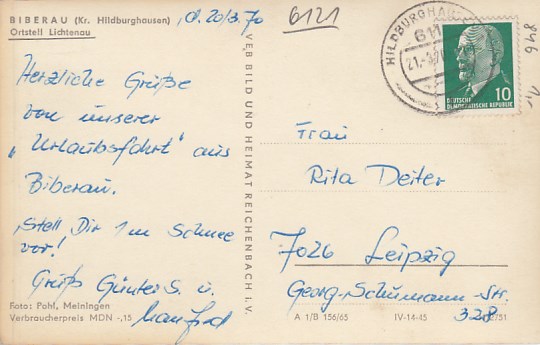 BIBERAU (Kr. Hildburghausen)
Ortsteil Lichtenau
d. 20/3. 70
6121
Herzliche Grüße
von unserer
"Urlaubsfahrt" aus
Biberau.
Stell Dir 1m Schnee
vor!
Gruß Günter S. u.
Manfred
Foto: Pohl, Meiningen
Verbraucherpreis MDN -,15
VEB BILD UND HEIMAT REICHENBACH I. V.
HILDBURGHAUSEN
611
21.-3.70
10
DEUTSCHE
DEMOKRATISCHE REPUBLIK
846
1,-
Frau
Rita Deiter
7026 Leipzig
Georg-Schumann-Str.
328
A 1/B 156/65 IV-14-45